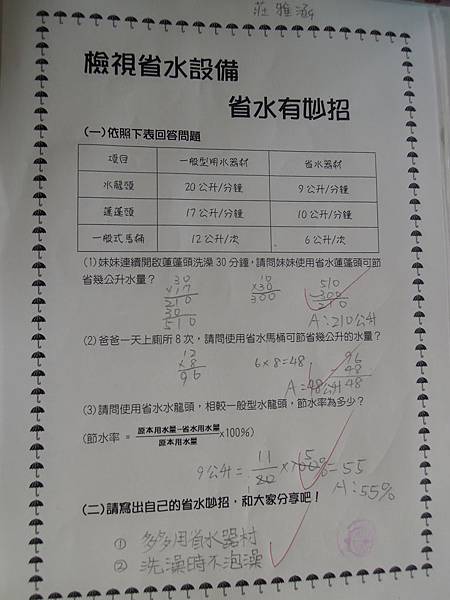 莊雅涵
檢視省水設備
省水有妙招
(一)依照下表回答問題
項目 一般型用水器材 省水器材
水龍頭 20公升/分鐘 9公升/分鐘
蓮蓬頭 17公升/分鐘 10公升/分鐘
一般式馬桶 12公升/次 6公升/次
(1)妹妹連續開啟蓮蓬頭洗澡30分鐘,請問妹妹使用省水蓮蓬頭可節
省幾公升水量?
30 10 510
×17 ×30 -300
210 300 210
30
510 A:210公升
(2)爸爸一天上廁所8次,請問使用省水馬桶可節省幾公升的水量?
12 6×8=48 96
×8 48
96 A=48公升 48
(3)請問使用省水水龍頭,相較一般型水龍頭,節水率為多少?
(節水率 = 原本用水量-省水用水量/原本用水量 x100%)
9公升= 11/20 ×100% 5 = 55
A:55%
(二)請寫出自己的省水妙招,和大家分享吧!
① 多多用省水器材
② 洗澡時不泡澡